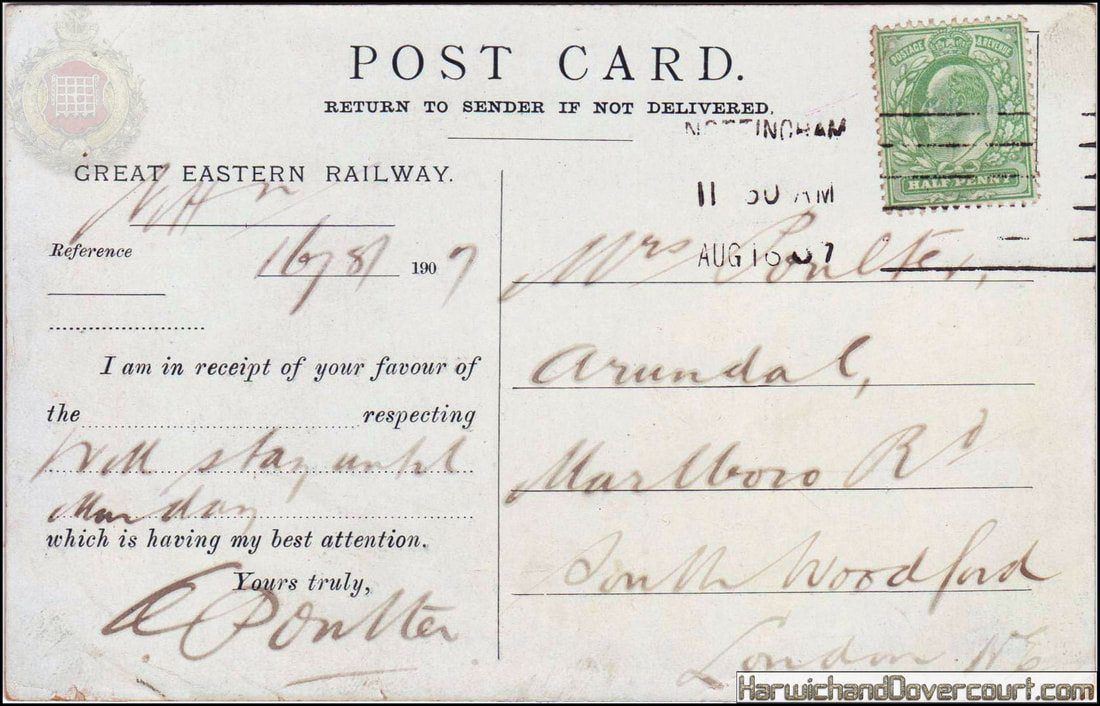 POST CARD.
RETURN TO SENDER IF NOT DELIVERED.
NOTTINGHAM
11 30 AM
AUG 16 07
POSTAGE & REVENUE
HALF PENNY
GREAT EASTERN RAILWAY.
Reference
16/8/ 1907
I am in receipt of your favour of
the respecting
Will stay until
Monday
which is having my best attention.
Yours truly,
Poulter
Mrs Poulter,
Arundal,
Marlboro Rd
South Woodford
London
HarwichandDovercourt.com